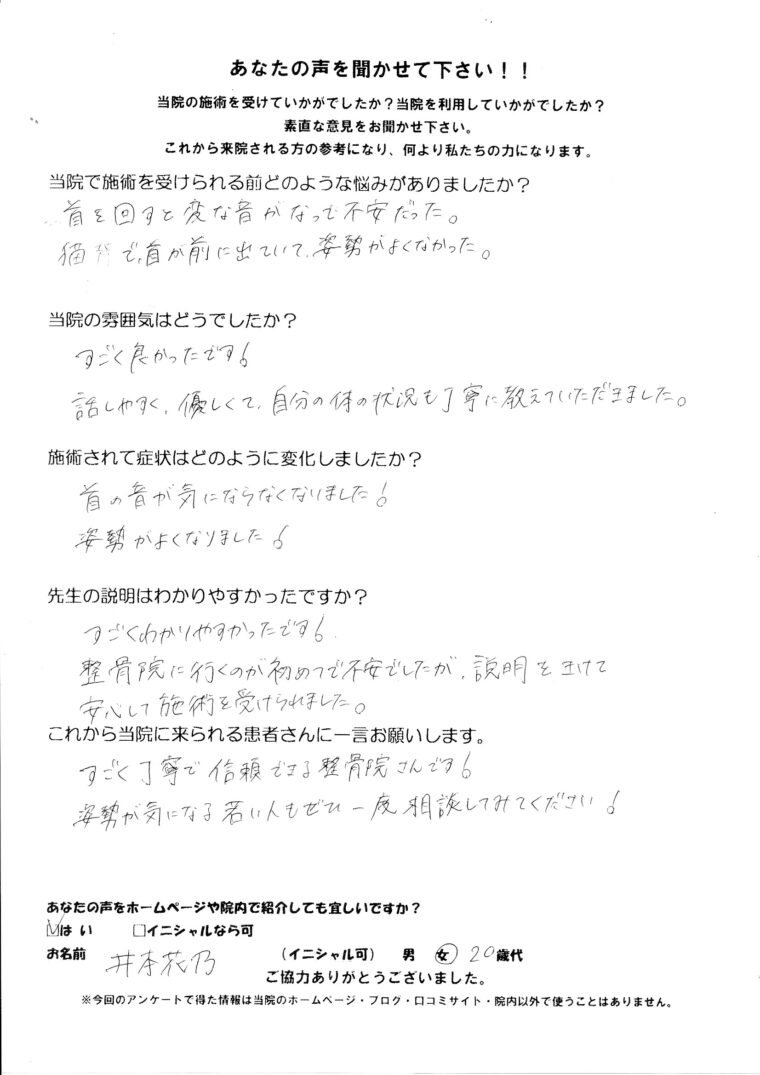 あなたの声を聞かせて下さい！！
当院の施術を受けていかがでしたか？当院を利用していかがでしたか？
素直な意見をお聞かせ下さい。
これから来院される方の参考になり、何より私たちの力になります。
当院で施術を受けられる前どのような悩みがありましたか？
首を回すと変な音がなって不安だった。
猫背で、首が前に出ていて、姿勢がよくなかった。
当院の雰囲気はどうでしたか？
すごく良かったです！
話しやすく、優しくて、自分の体の状況も丁寧に教えていただきました。
施術されて症状はどのように変化しましたか？
首の音が気にならなくなりました！
姿勢がよくなりました！
先生の説明はわかりやすかったですか？
すごくわかりやすかったです！
整骨院に行くのが初めてで不安でしたが、説明をきけて
安心して施術を受けられました。
これから当院に来られる患者さんに一言お願いします。
すごく丁寧で信頼できる整骨院さんです！
姿勢が気になる若い人もぜひ一度相談してみてください！
あなたの声をホームページや院内で紹介しても宜しいですか？
☑はい □イニシャルなら可
お名前 井本花乃 （イニシャル可） 男 女 20歳代
ご協力ありがとうございました。
※今回のアンケートで得た情報は当院のホームページ・ブログ・口コミサイト・院内以外で使うことはありません。